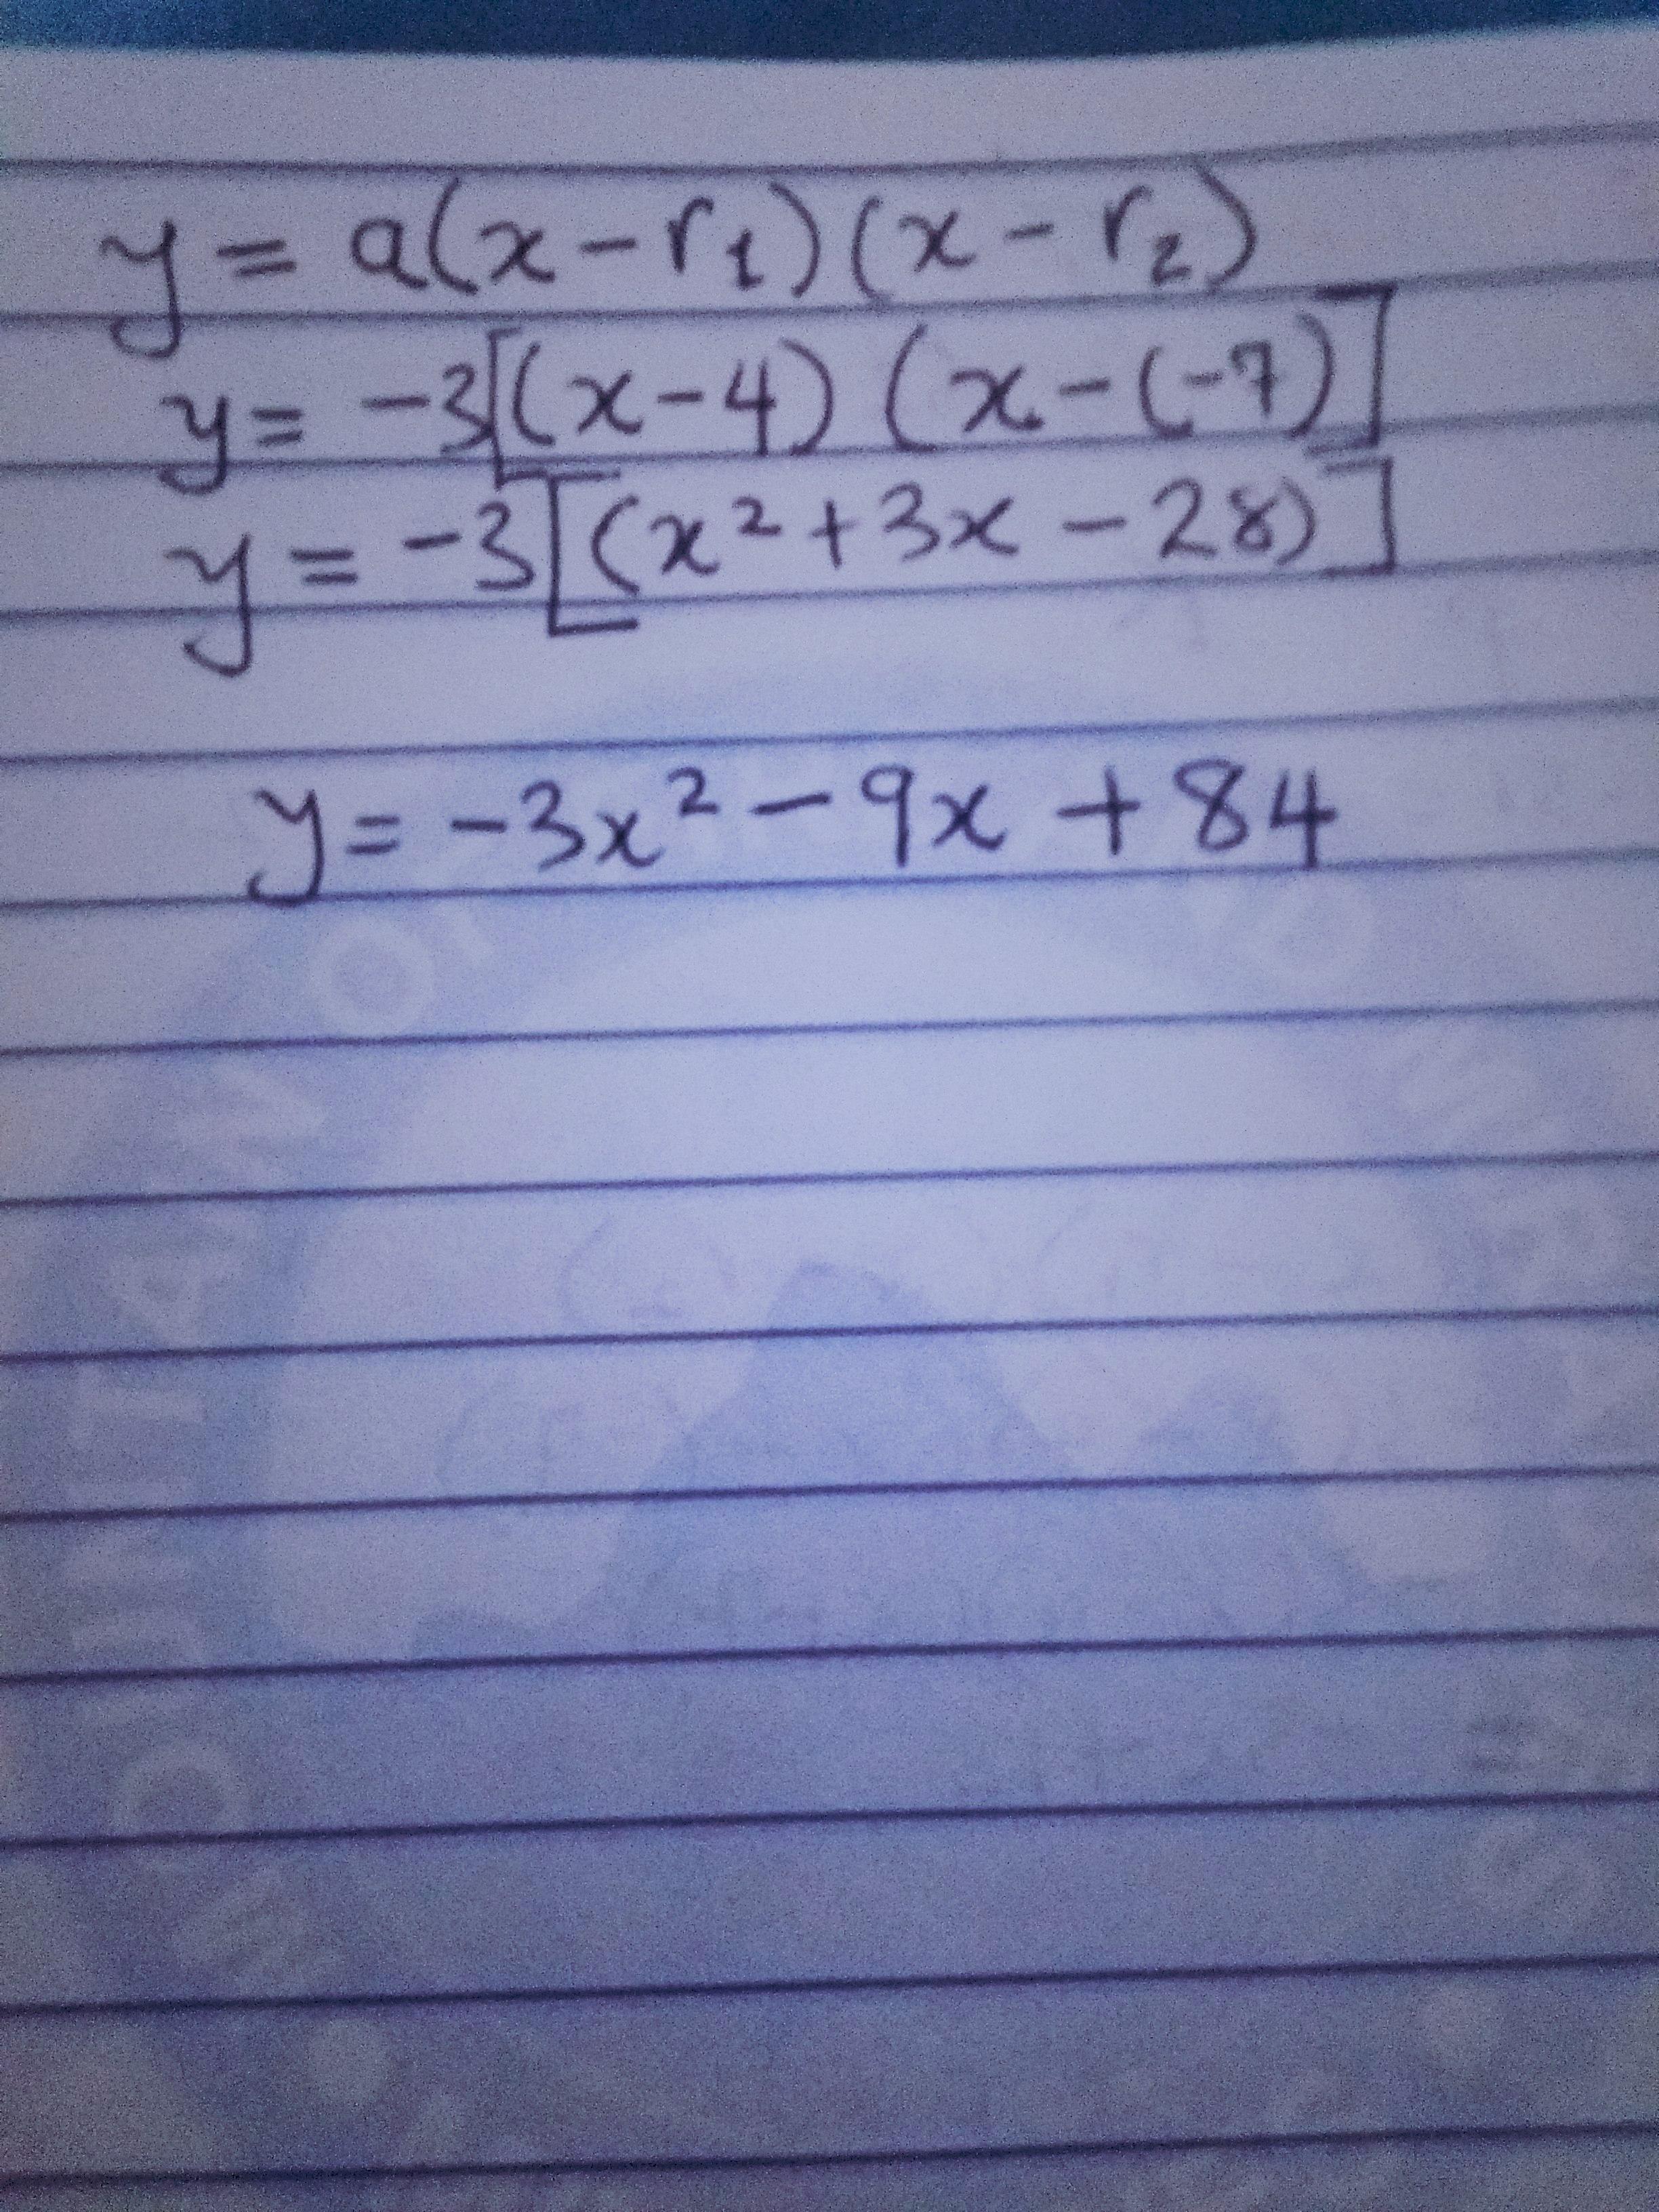 y = a(x - r₁)(x - r₂)
y = -3[(x-4) (x-(-7)]
y = -3[(x² + 3x - 28)]
y = -3x² - 9x + 84